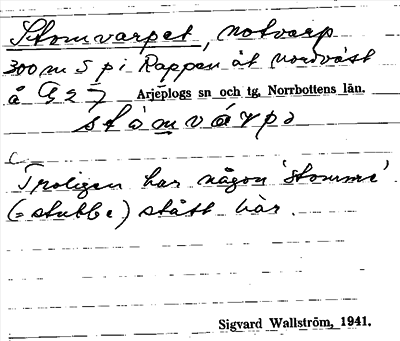 Stomvarpet, notvarp
300 m S p i Rappen åt nordväst
å G 2 7 Arjeplogs sn och tg. Norrbottens län.
Troligen har någon 'stomme'
(= stubbe) stått här.
Sigvard Wallström, 1941.